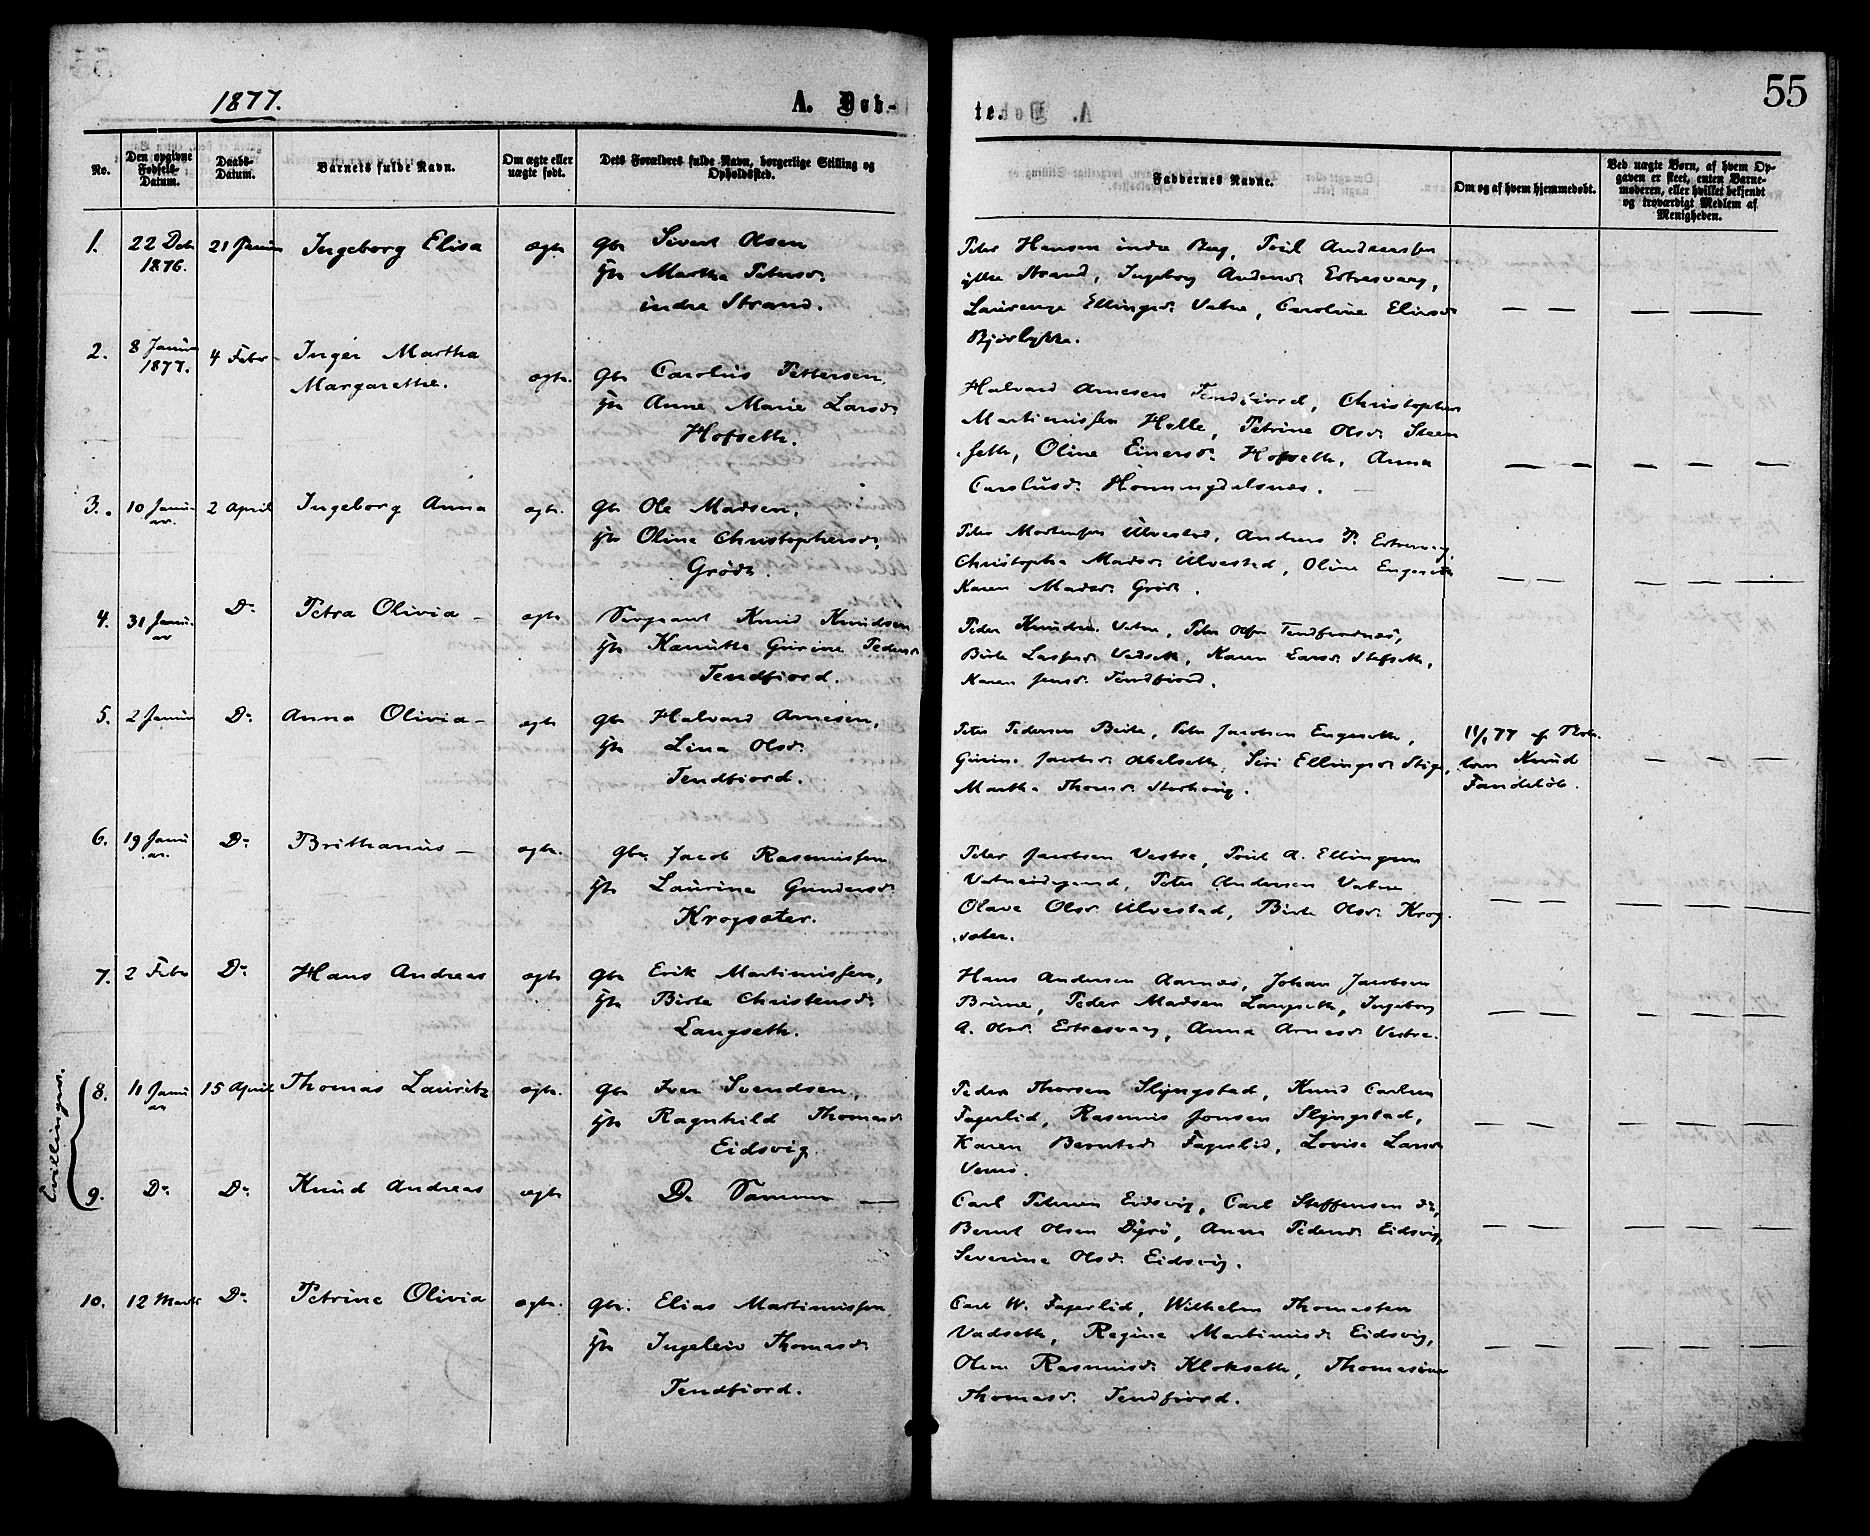 1877.
A. Døb-
te.
55
No.
Den opgivne Fødsels-Datum.
Daabs-Datum.
Barnets fulde Navn.
Om ægte eller uægte født.
Dets Forældres fulde Navn, borgerlige Stilling og Opholdssted.
Faddernes Navne.
Om og af hvem hjemmedøbt.
Ved uægte Børn, af hvem Op-
gaven er skeet, enten Barne-
moderen, eller hvilket bekjendt
og troværdigt Medlem af
Menigheden.
1. 22 Dcb 1876. 21 Januar Ingeborg Elisa ægte
Gbr Sivert Olsen
Martha Petersd.
indre Strand.
Peder Hansen indre Berg,
ytre Strand, Ingeborg Andersd. Ertresvaag,
Laurenze Ellingsd. Vatne, Caroline Eliasd
2. 8 Januar 1877. 4 Febr Inger Martha
Margarethe. ægte.
Gbr Carolus Pettersen,
Anne Marie Larsd.
Hofseth.
Halvard Arnesen Tendfiord, Christopher
Martinussen Helle, Petrine Olsd. Steen
seth, Oline Einersd. Hofseth, Anna
Carolusd. Honningdalsnæs.
3. 10 Januar. 2 April Ingeborg Anna ægte.
Gbr Ole Madsen,
Oline Christophersd.
Grødt.
Peder Mortensen Ulvestad, Andreas P. Ertresvaag,
Christophe Madsd. Ulvestad, Oline Engeseth
Karen Madsd. Grødt.
4. 31 Januar Do Petra Olivia – ægte
Sergeant Knud Knudsen
Kanutte Gurine Pedersd
Tendfiord.
Peder Knudsen Vatne, Peter Olsen Tendfiordnæs,
Birte Vadseth, Karen Larsd. Slefseth,
Karen Jensd. Tendfiord.
5. 2 Januar Do Anna Olivia – ægte
Gbr Halvard Arnesen,
Lina Olsd.
Tendfiord.
Peter Pedersen Birte, Peder Jacobsen Engeseth,
Gurine Jacobsd. Akselseth, Siri Ellingsd. Stige,
Martha Thomsd.
11/1 77 af
Knud
Fandeløb.
6. 19 Januar. Do Brithanus – ægte.
Gbr. Jacob Rasmussen
Laurine Gundersd.
Krogsæter.
Peder Jacobsen Vestre, A. Ellingsen
Vatneeidegaard, Peter Andersen Vatne
Olave Olsd. Ulvestad, Birte Olsd. Krog
sæter.
7. 2 Febr Do Hans Andreas ægte
Gbr Erik Martinussen,
Birte Christensd.
Langseth.
Hans Andersen Aarnæs, Johan Jacobsen
Brune, Peder Madsen Langseth, Ingeborg
A. Olsd. Ertresvaag, Anna Arnesd. Vestre.
8. 11 Januar 15 April Thomas Lauritz ægte.
Gbr Iver Svendsen,
Ragnhild Thomasd.
Eidsvig.
Peder Thorsen Slyngstad, Knud Carlsen
Fagerlid, Rasmus Jonsen Slyngstad,
Karen Berntsd. Fagerlid, Lovise Larsd
9. Do Do Knud Andreas ægte
De Samme –
Carl Petersen Eidsvig, Carl Steffensen do,
Bernt Olsen Dyrø, Anne Pedersd. Eidsvig,
Severine Olsd. Eidsvig.
10. 12 Marts Do Petrine Olivia ægte.
Gbr. Elias Martinussen
Ingeleiv Thomasd.
Tendfiord.
Carl W. Fagerlid, Wilhelm Thomassen
Vadseth, Regine Martinusd. Eidsvig,
Rasmusd. Klokseth, Thomasine
Thomasd. Tendfiord.